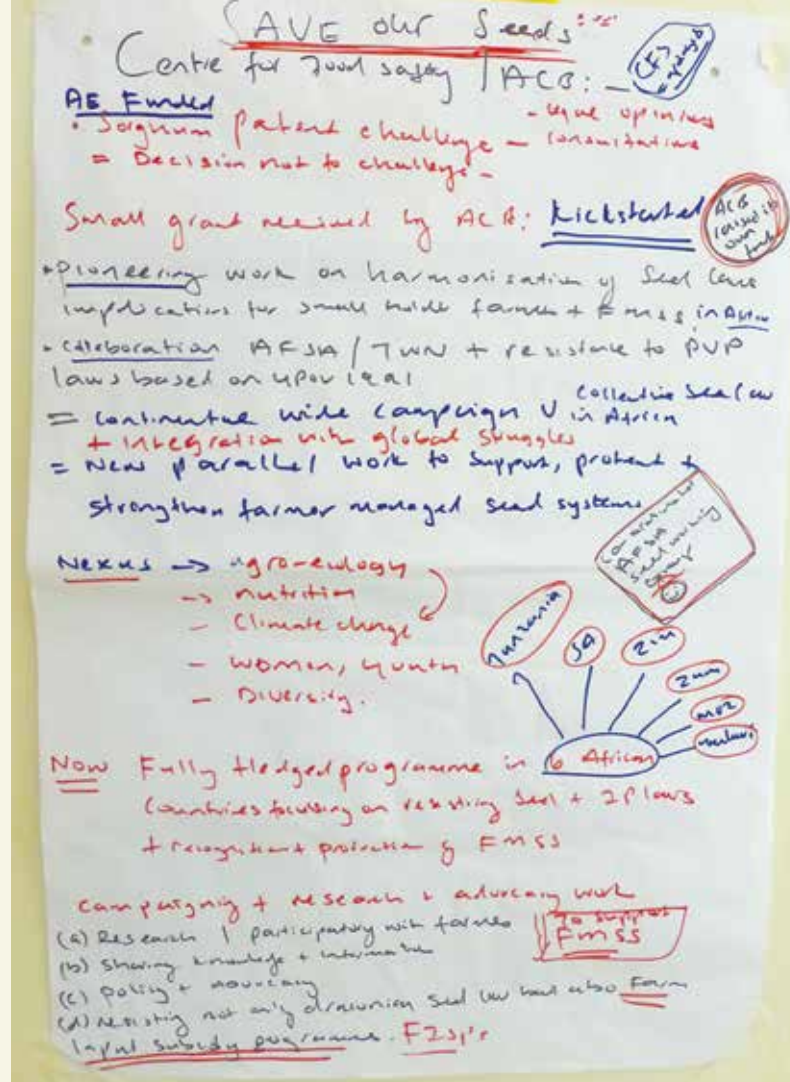 SAVE our Seeds
Centre for Food safety / ACB: -
AE Funded
• Sorghum patent challenge -
- legal opinions
consultations
= Decision not to challenge -
Small grant received by ACB: Kickstarted
ACB
raised its
own
funds
• Pioneering work on harmonisation of Seed laws
implications for small holder farmers + FMSS in Africa
• Collaboration AFSA / TWN + resistance to PVP
laws based on UPOV 1991
= Continental wide campaign V Collective Seed law
in Africa
+ Integration with global struggles
= New parallel work to support, protect +
strengthen farmer managed seed systems
Co-ordinator
AFSA
seed working
group
Nexus → agro-ecology
→ nutrition
- Climate change
- women, youth
- Diversity.
Tanzania
SA
Zim
Zam
Moz
Malawi
Now Fully fledged programme in 6 African
Countries focusing on resisting seed + IP laws
+ recognition + protection of FMSS
campaigning + research + advocacy work
To support
FMSS
(a) Research / participatory with farmers
(b) Sharing knowledge + information
(c) Policy + advocacy
(d) Resisting not only draconian seed law but also Farm
Input subsidy programmes. FISP's